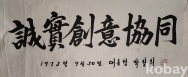 誠實創意協同
1973年 9月 30日 대통령 박정희
kobay